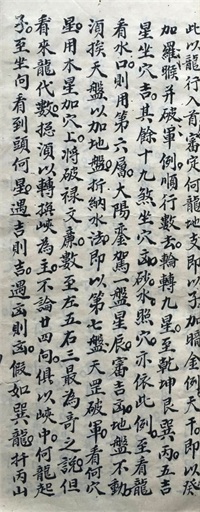 此以龍行入首審定何龍地支即子加暗金例天干即以癸
加羅猴并破軍例順行數去輪轉九星至乾坤艮巽丙五吉
星坐穴吉其餘十九煞坐穴凶砂水照穴亦依此例至看龍
看水口則用第六層大陽鑾駕盤星辰審吉凶地盤不動
須挨天盤以加地盤拆納水法即以第七盤天罡破軍看何穴
星用水星加穴上將破祿文廉數至左五右三最為奇之説但
看來龍代數總須以轉摺峽為主不論廿四向俱以峽中何龍起
子至坐向看到頭何星遇吉則吉遇凶則凶假如巽龍扦丙山